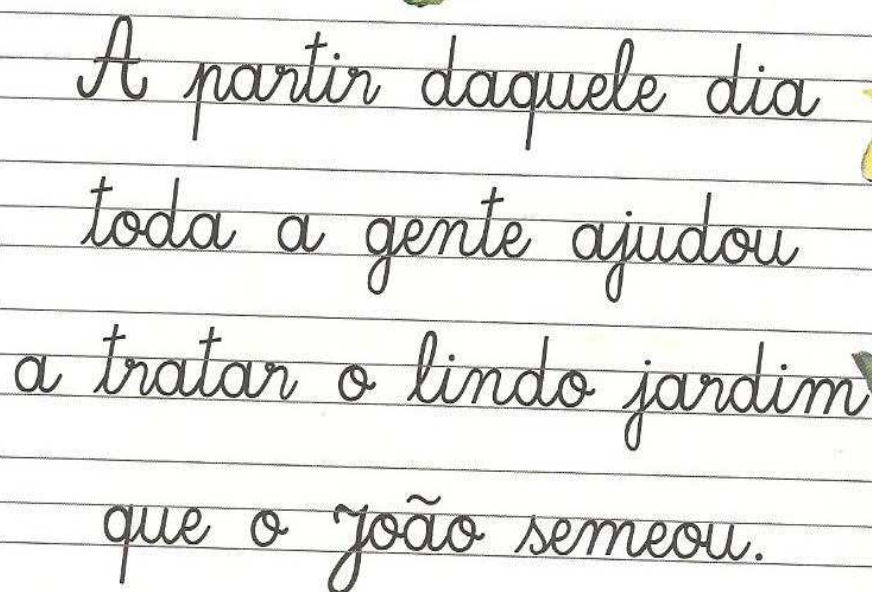 A partir daquele dia
toda a gente ajudou
a tratar o lindo jardim
que o João semeou.